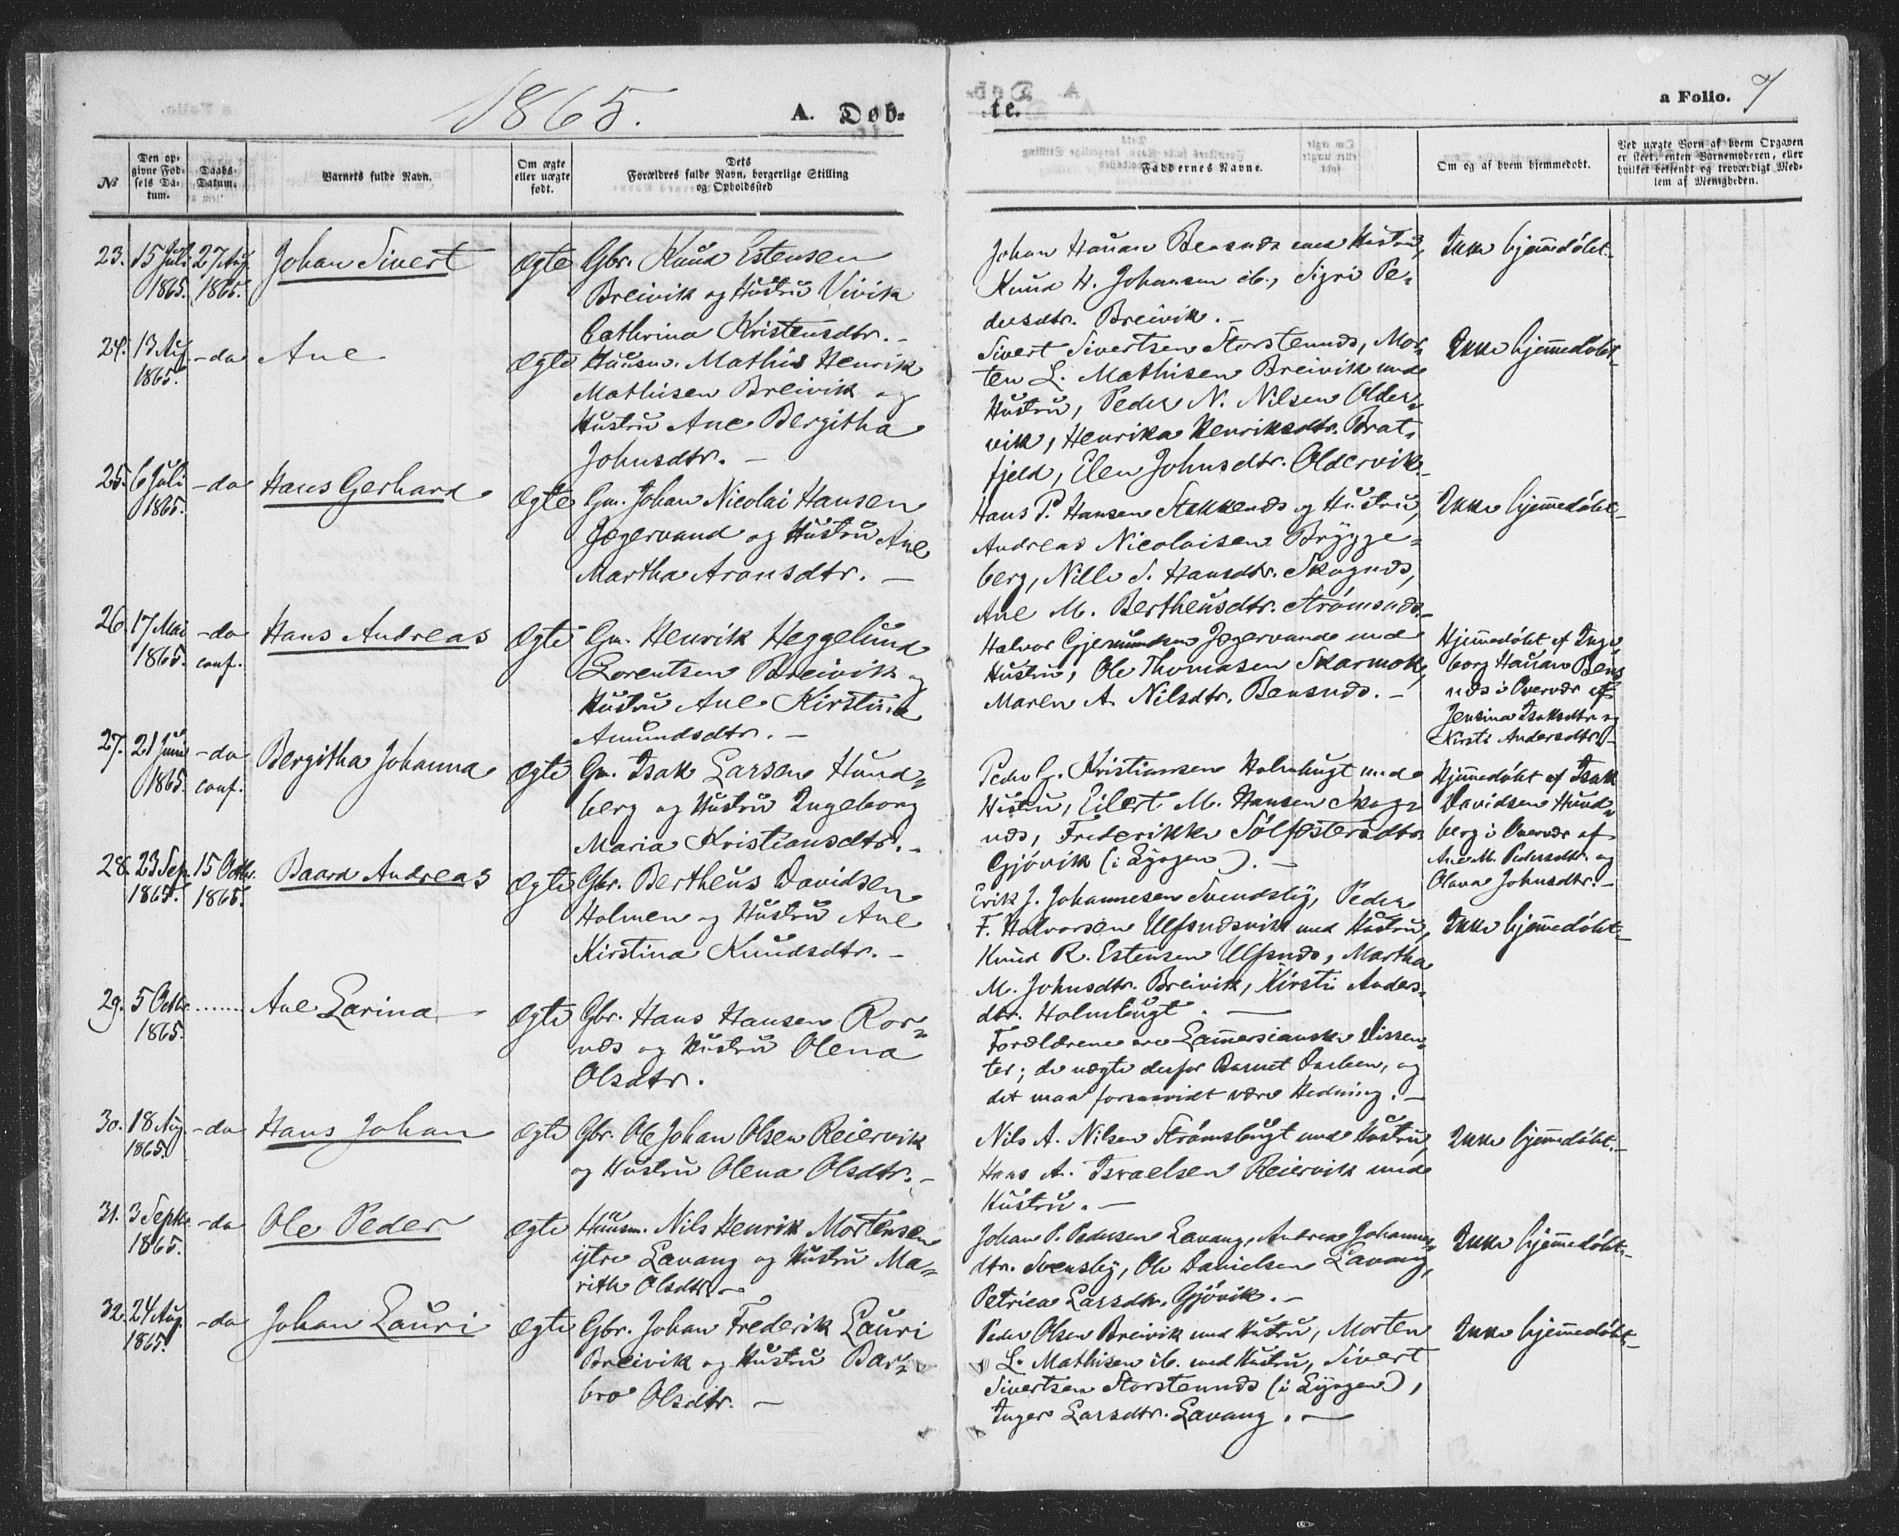 1865.
A. Døb-
te.
a Folio. 7
№
Den op-
givne Fød-
sels Da-
tum.
Daabs-
Datum.
Barnets fulde Navn.
Om ægte
eller uægte
født.
Dets
Forældres fulde Navn, borgerlige Stilling
og Opholdssted
Faddernes Navne.
Om og af hvem hjemmedøbt.
Ved uægte Børn af hvem Opgaven
er skeet, enten Barnemoderen, eller
hvilket bekjendt og troværdigt Med-
lem af Menigheden.
23.
15 Juli
1865.
27 Aug.
1865.
Johan Sivert
Ægte
Gbr. Knud Estensen
Breivik og Hustru Vivik
Cathrina Kristensdtr. -
Johan Hansen Bensnds med Hustru,
Knud H. Johansen ib., Sigri Pe-
dersdtr. Breivik. -
Ikke hjemmedøbt.
24.
13 Aug
1865.
- do
Ane
Ægte
Huusm. Mathis Henrik
Mathisen Breivik og
Hustru Ane Bergitha
Johnsdtr. -
Sivert Sivertsen Storstennds, Mor-
ten L. Mathisen Breivik med
Hustru, Peder N. Nilsen Older-
vik, Henrika Henriksdtr. Brat-
fjeld, Elen Johnsdtr. Oldervik.
Ikke hjemmedøbt.
25.
6 Juli
1865.
- do
Hans Gerhard
Ægte
Gm. Johan Nicolai Hansen
Jægervand og Hustru Ane
Martha Aronsdtr. -
Hans P. Hansen Stakkends og Hustru,
Andreas Nicolaisen Brygge-
berg, Nille S. Hansdtr. Skognds,
Ane M. Bertheusdtr. Strømsnds.
Ikke hjemmedøbt.
26.
17 Mai
1865.
- do
conf.
Hans Andreas
Ægte
Gm. Henrik Heggelund
Lorentsen Breivik og
Hustru Ane Kirstina
Amundsdtr. -
Halvor Gjermundsen Jægervande med
Hustru, Ole Thomasen Skarmok,
Maren A. Nilsdtr. Bensnds. -
Hjemmedøbt af Inge-
borg Hansen Bens
nds i Overvær af
Jensina Isaksdtr og
Kirsti Andersdtr. -
27.
21 Juni
1865.
- do
conf.
Bergitha Johanna
Ægte
Gm. Isak Larsen Hund-
berg og Hustru Ingeborg
Maria Kristiansdtr. -
Peder G. Kristiansen Holmbugt med
Hustru, Eilert M. Hansen Skog-
nds, Frederikke Sølfestersdtr
Gjövik (i Lyngen). -
Hjemmedøbt af Isak
Davidsen Hund-
berg i Overvær af
Ane M. Pedersdtr. og
Olava Johnsdtr. -
28.
23 Sep.
1865.
15 Octbr.
1865.
Baard Andreas
Ægte
Gbr. Bertheus Davidsen
Holmen og Hustru Ane
Kirstina Knudsdtr. -
Erik J. Johannesen Svendsby, Peder
F. Halvorsen Ulfsndsvik med Hustru,
Knud R. Estensen Ulfsnds, Martha
M. Johnsdtr. Breivik, Kirsti Anders-
dtr. Holmbugt. -
Ikke hjemmedøbt.
29.
5 Octbr
1865.
........
Ane Larina
Ægte
Gbr. Hans Hansen Ror-
nds og Hustru Olena
Olsdtr.
Forældrene ere Lammersianske Dissen-
ter; de nægte derfor Barnet Daaben, og
det maa forsaavidt være Hedning. -
30.
18 Aug.
1865.
- do
Hans Johan
Ægte
Gbr. Ole Johan Olsen Reiervik
og Hustru Olena Olsdtr. -
Nils A. Nilsen Strømsbugt med Hustru,
Hans A. Israelsen Reiervik med
Hustru. -
Ikke hjemmedøbt.
31.
3 Septbr.
1865.
- do
Ole Peder
Ægte
Huusm. Nils Henrik Mortensen
ytre Lavang og Hustru Ma-
rith Olsdtr. -
Johan P. Pedersen Lavang, Andrea Johannes-
dtr. Svensby, Ole Danielsen Lavang,
Petrica Larsdtr. Gjövik. -
Ikke hjemmedøbt.
32.
24 Aug.
1865.
- do
Johan Lauri
Ægte
Gbr. Johan Frederik Lauri
Breivik og Hustru Bar-
bro Olsdtr. -
Peder Olsen Breivik med Hustru, Morten
L. Mathisen ib. med Hustru, Sivert
Sivertsen Storstennds (i Lyngen),
Inger Larsdtr. Lavang. -
Ikke hjemmedøbt.